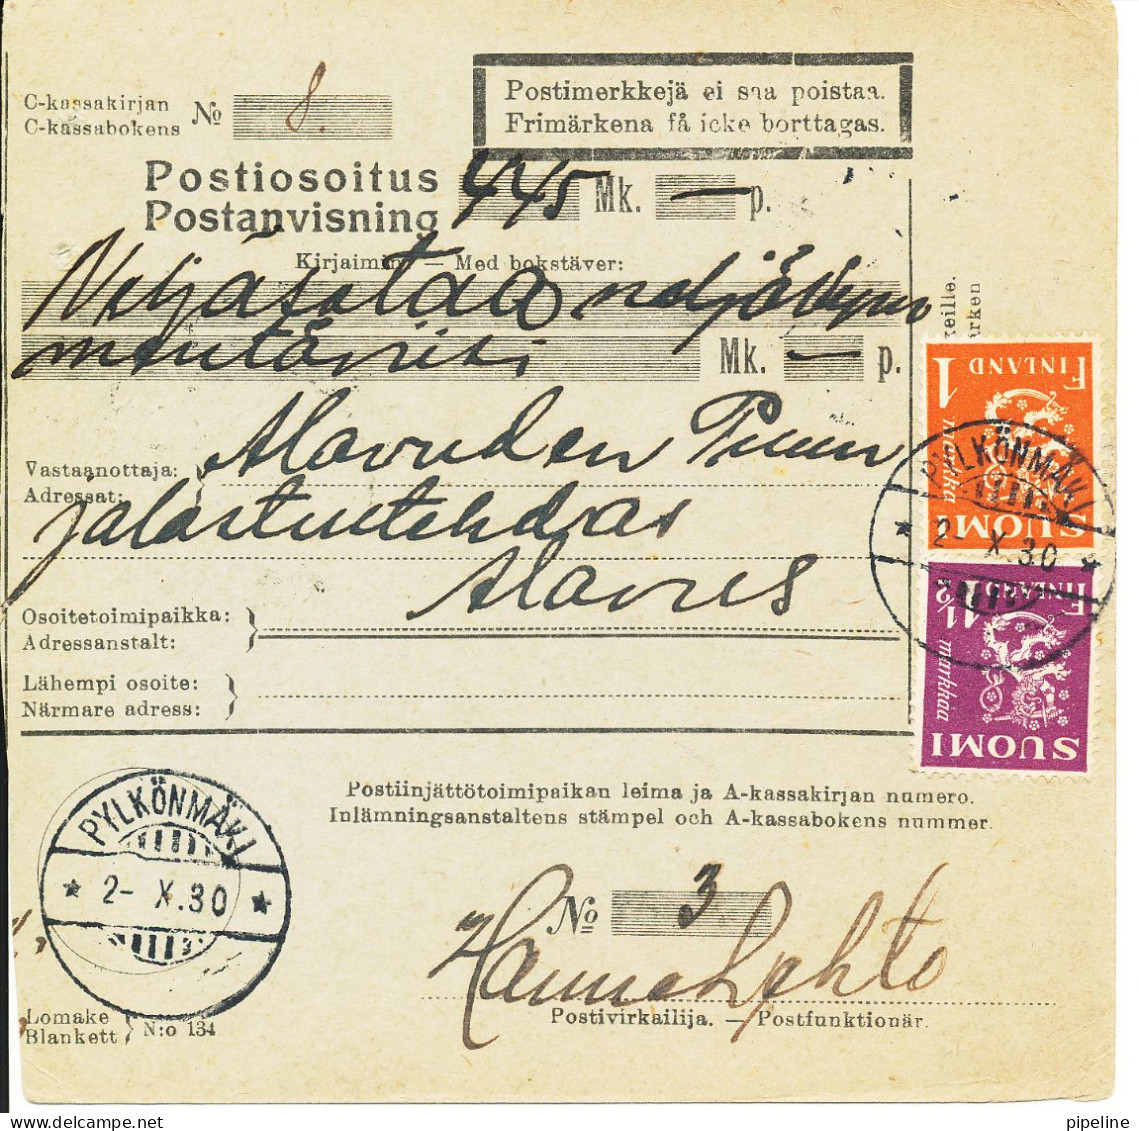 C-kassakirjan
C-kassabokens
No 8.
Postimerkkejä ei saa poistaa.
Frimärkena få icke borttagas.
Postiosoitus
Postanvisning
445 Mk. — p.
Kirjaimin — Med bokstäver:
Neljäsataa neljäkym
mentäviisi Mk. — p.
Vastaanottaja: Alavuden Puun
Adressat:
jalostustehdas
Alavus
Osoitetoimipaikka:
Adressanstalt:
Lähempi osoite:
Närmare adress:
eille.
rken
1 FINLAND
markka
SUOMI
PYLKÖNMÄKI
2- X.30
1½ FINLAND
markkaa
SUOMI
PYLKÖNMÄKI
2- X.30
Postiinjättötoimipaikan leima ja A-kassakirjan numero.
Inlämningsanstaltens stämpel och A-kassabokens nummer.
No 3
Hanna Lehto
Postivirkailija. — Postfunktionär.
Lomake
Blankett
N:o 134
pipeline